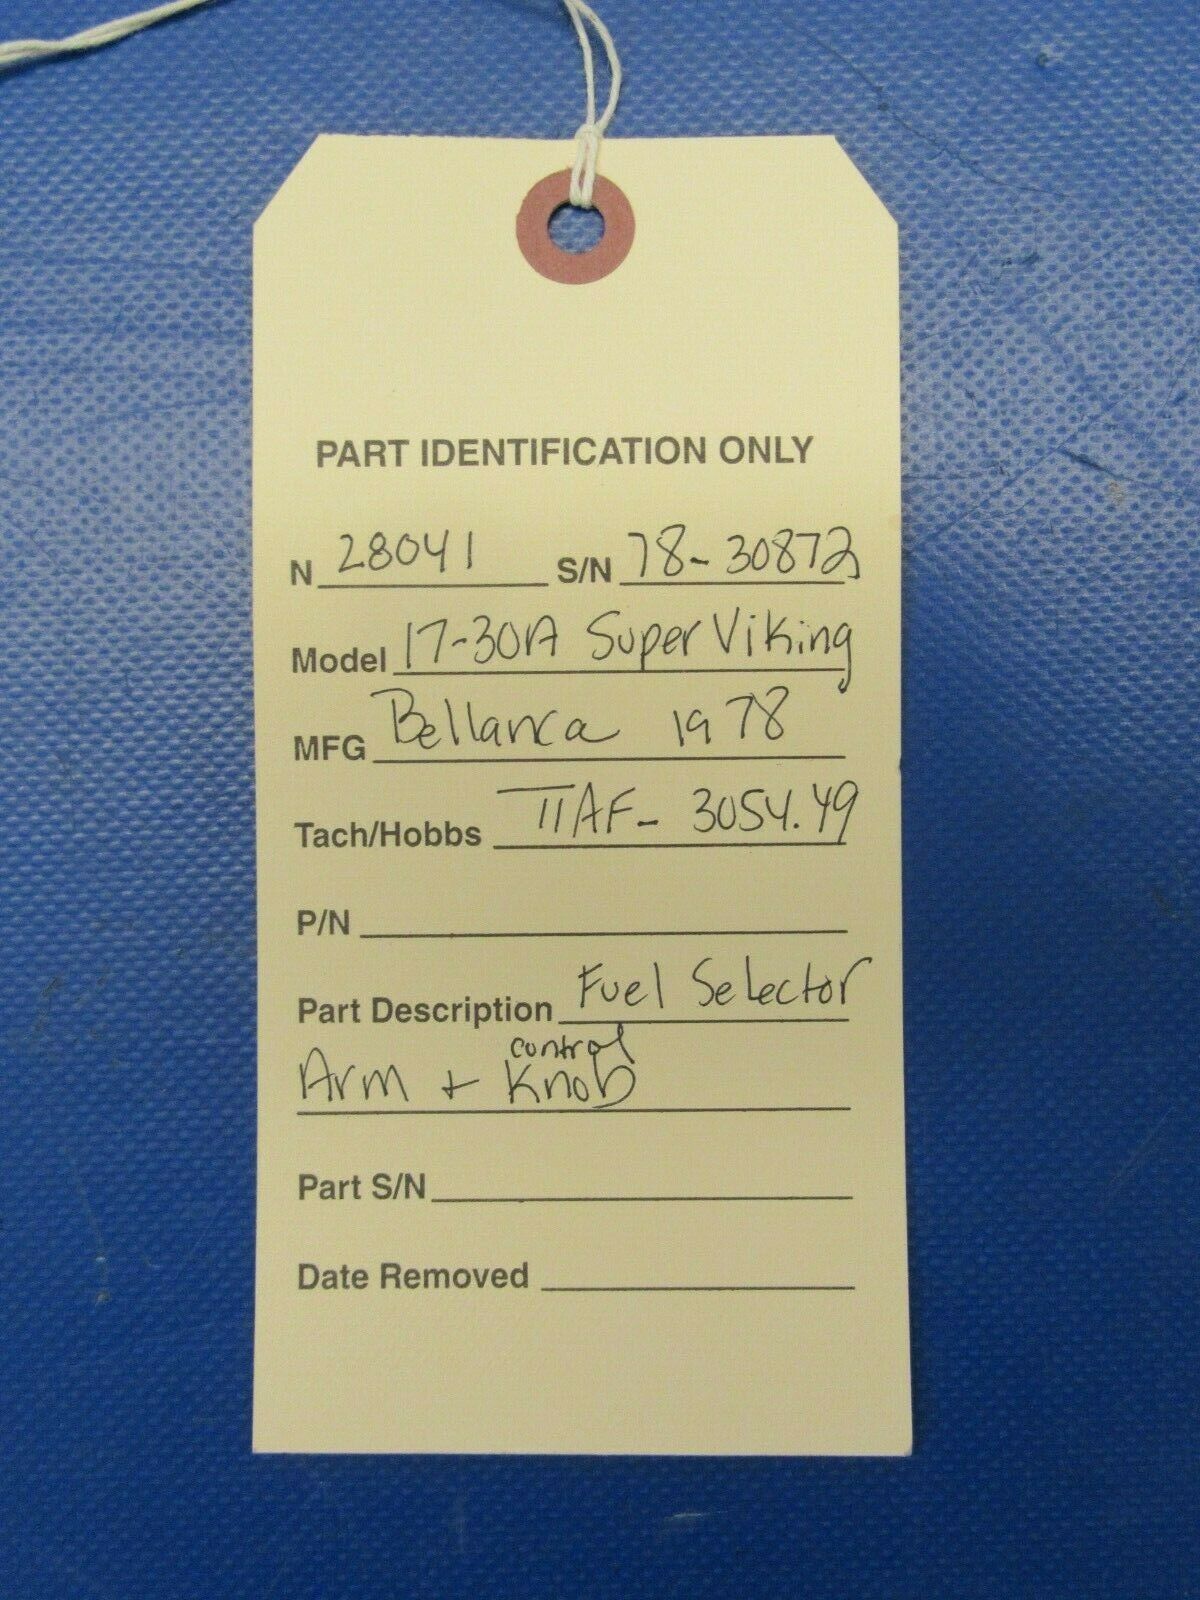 PART IDENTIFICATION ONLY
N 28041 S/N 78-30872
Model 17-30A Super Viking
MFG Bellanca 1978
Tach/Hobbs TTAF- 3054.49
P/N
Part Description Fuel Selector
control
Arm + Knob
Part S/N
Date Removed